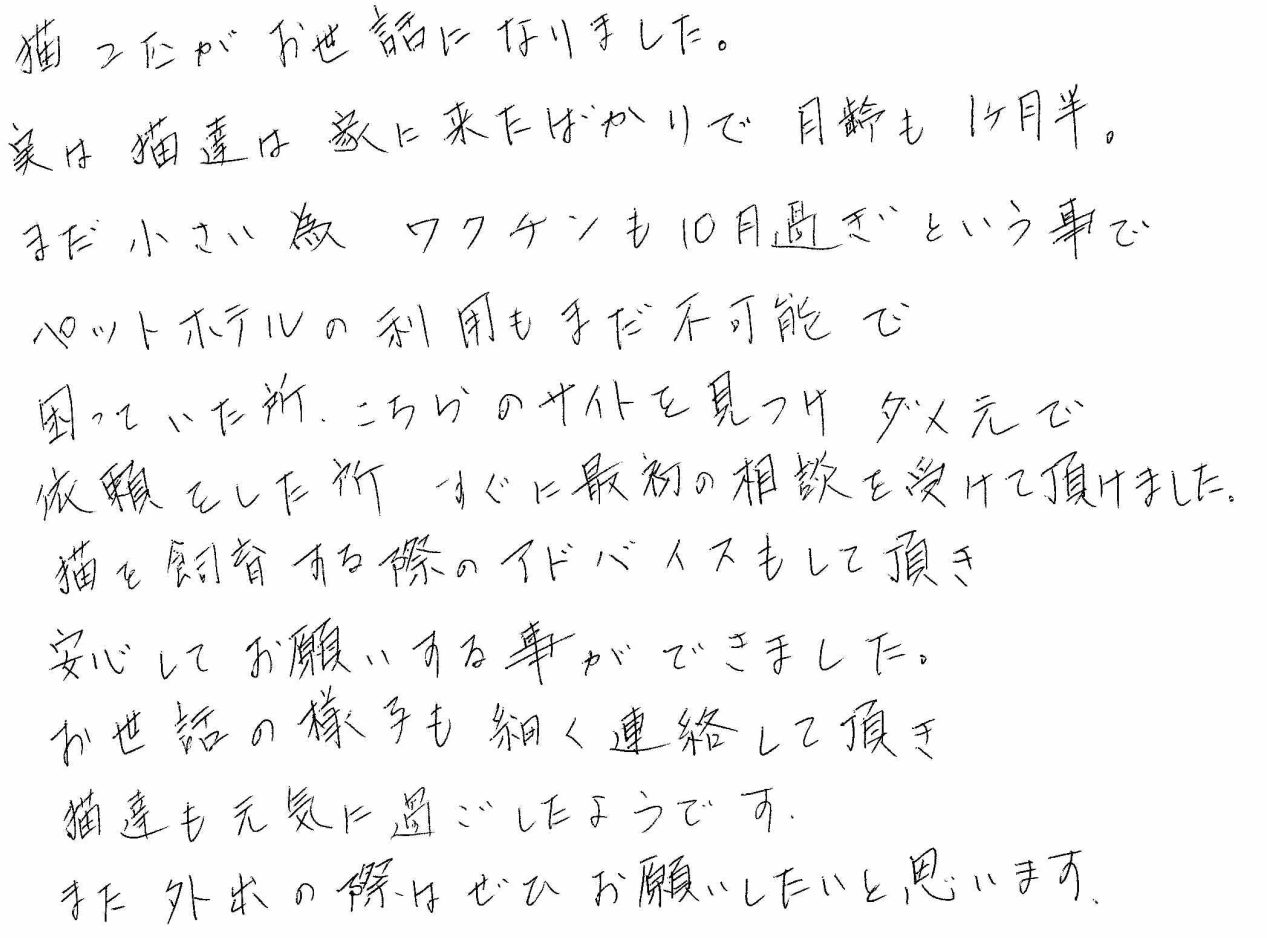 猫二匹がお世話になりました。
実は猫達は家に来たばかりで月齢も1ケ月半。
まだ小さい為 ワクチンも10月過ぎという事で
ペットホテルの利用もまだ不可能で
困っていた所、こちらのサイトを見つけ ダメ元で
依頼をした所 すぐに最初の相談を受けて頂けました。
猫を飼育する際のアドバイスもして頂き
安心してお願いする事ができました。
お世話の様子も細く連絡して頂き
猫達も元気に過ごしたようです.
また外出の際はぜひお願いしたいと思います.